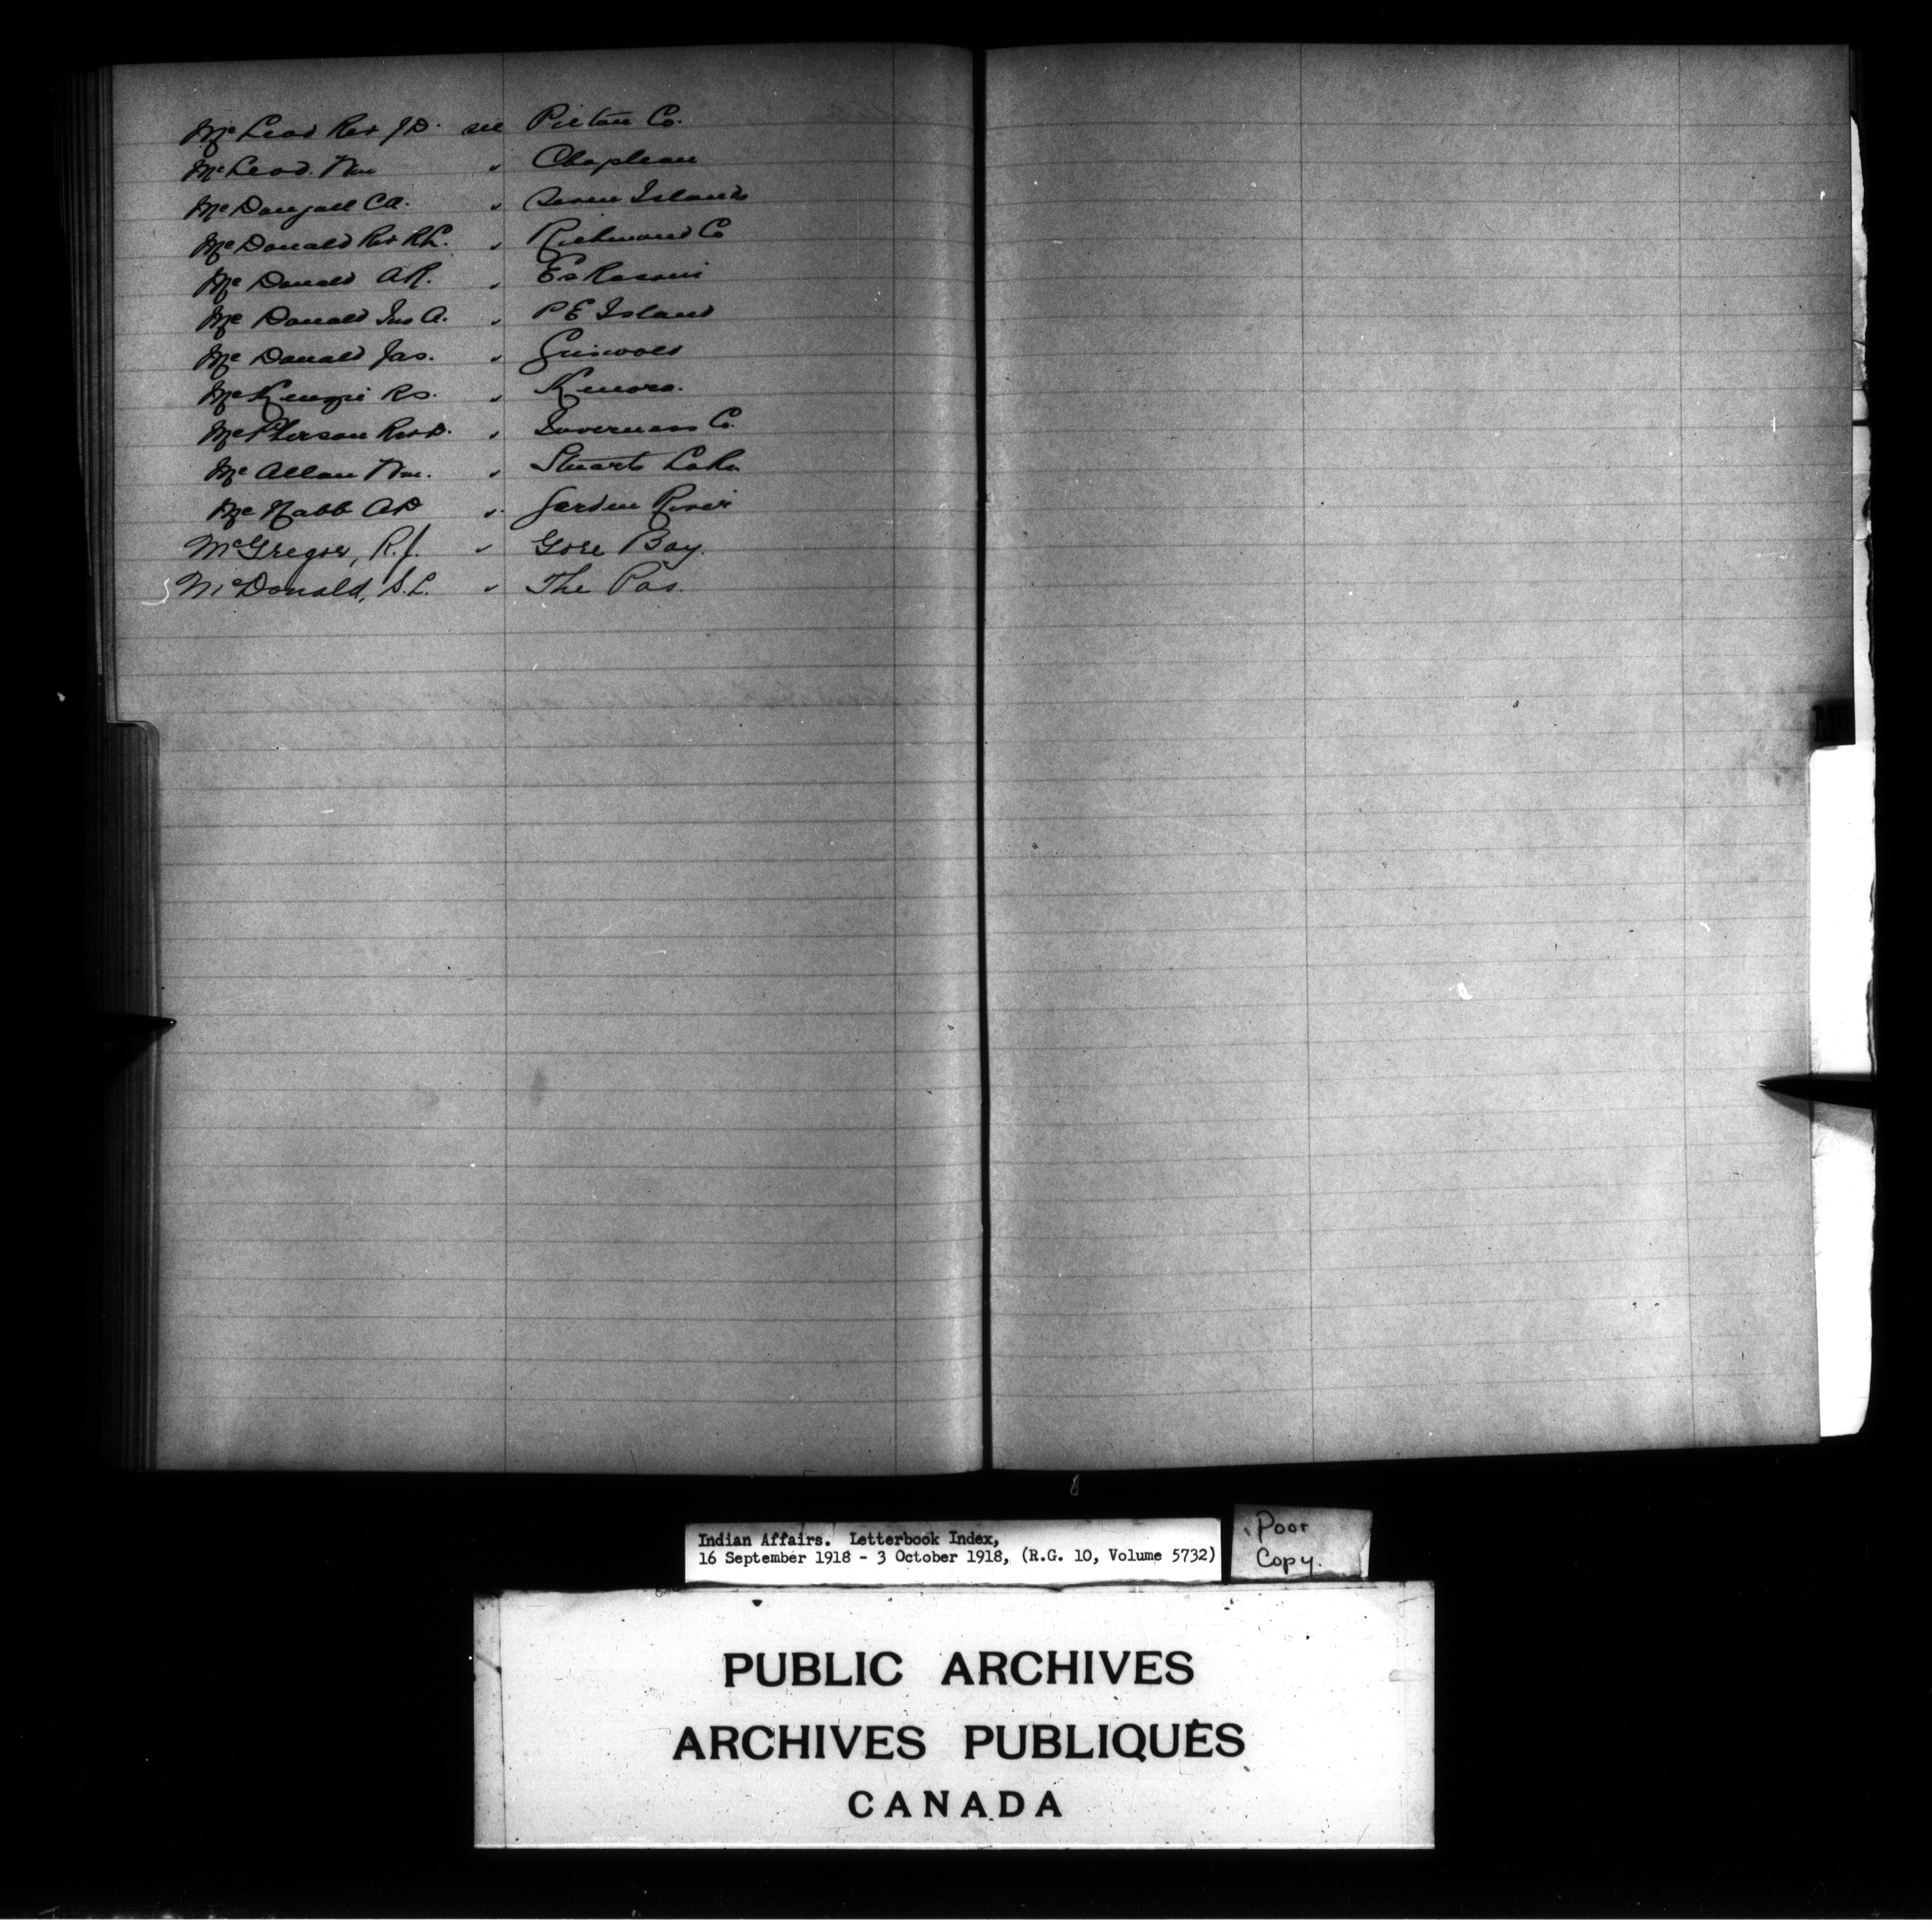 McLeod Rev J.D. see Pictou Co.
McLeod. Wm " Chapleau
McDougall CA. " Seven Islands
McDonald Rev R.L. " Richmond Co
McDonald A.R. " Eskasoni
McDonald Jno A. " P E Island
McDonald Jas. " Griswold
McKenzie R.S. " Kenora.
McPherson Rev D. " Inverness Co.
McAllan Wm. " Stuarts Lake
McNabb A.D " Garden River
McGregor, R.J. " Gore Bay.
McDonald, S.L. " The Pas.
Indian Affairs. Letterbook Index,
16 September 1918 - 3 October 1918, (R.G. 10, Volume 5732)
Poor
Copy.
PUBLIC ARCHIVES
ARCHIVES PUBLIQUES
CANADA